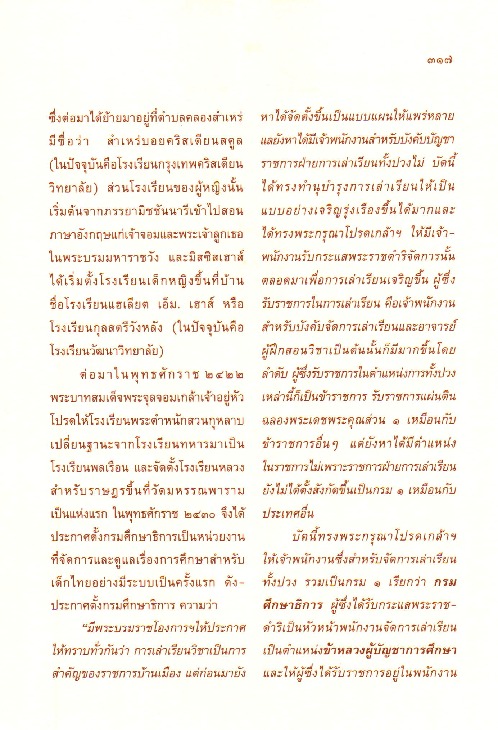 ๓๑๗
ซึ่งต่อมาได้ย้ายมาอยู่ที่ตำบลคลองสำเหร่
มีชื่อว่า สำเหร่บอยคริสเตียนสคูล
(ในปัจจุบันคือโรงเรียนกรุงเทพคริสเตียน
วิทยาลัย) ส่วนโรงเรียนของผู้หญิงนั้น
เริ่มต้นจากภรรยามิชชันนารีเข้าไปสอน
ภาษาอังกฤษแก่เจ้าจอมและพระเจ้าลูกเธอ
ในพระบรมมหาราชวัง และมิสซิสเฮาส์
ได้เริ่มตั้งโรงเรียนเด็กหญิงขึ้นที่บ้าน
ชื่อโรงเรียนแฮเลียต เอ็ม. เฮาส์ หรือ
โรงเรียนกุลสตรีวังหลัง (ในปัจจุบันคือ
โรงเรียนวัฒนาวิทยาลัย)
ต่อมาในพุทธศักราช ๒๔๒๒
พระบาทสมเด็จพระจุลจอมเกล้าเจ้าอยู่หัว
โปรดให้โรงเรียนพระตำหนักสวนกุหลาบ
เปลี่ยนฐานะจากโรงเรียนทหารมาเป็น
โรงเรียนพลเรือน และจัดตั้งโรงเรียนหลวง
สำหรับราษฎรขึ้นที่วัดมหรรณพาราม
เป็นแห่งแรก ในพุทธศักราช ๒๔๓๐ จึงได้
ประกาศตั้งกรมศึกษาธิการเป็นหน่วยงาน
ที่จัดการและดูแลเรื่องการศึกษาสำหรับ
เด็กไทยอย่างมีระบบเป็นครั้งแรก ดัง-
ประกาศตั้งกรมศึกษาธิการ ความว่า
“มีพระบรมราชโองการฯให้ประกาศ
ให้ทราบทั่วกันว่า การเล่าเรียนวิชาเป็นการ
สำคัญของราชการบ้านเมือง แต่ก่อนมายัง
หาได้จัดตั้งขึ้นเป็นแบบแผนให้แพร่หลาย
แลยังหาได้มีเจ้าพนักงานสำหรับบังคับบัญชา
ราชการฝ่ายการเล่าเรียนทั้งปวงไม่ บัดนี้
ได้ทรงทำนุบำรุงการเล่าเรียนให้เป็น
แบบอย่างเจริญรุ่งเรืองขึ้นได้มากและ
ได้ทรงพระกรุณาโปรดเกล้าฯ ให้มีเจ้า-
พนักงานรับกระแสพระราชดำริจัดการนั้น
ตลอดมาเพื่อการเล่าเรียนเจริญขึ้น ผู้ซึ่ง
รับราชการในการเล่าเรียน คือเจ้าพนักงาน
สำหรับบังคับจัดการเล่าเรียนและอาจารย์
ผู้ฝึกสอนวิชาเป็นต้นนั้นก็มีมากขึ้นโดย
ลำดับ ผู้ซึ่งรับราชการในตำแหน่งการทั้งปวง
เหล่านี้ก็เป็นข้าราชการ รับราชการแผ่นดิน
ฉลองพระเดชพระคุณส่วน ๑ เหมือนกับ
ข้าราชการอื่นๆ แต่ยังหาได้มีตำแหน่ง
ในราชการไม่เพราะราชการฝ่ายการเล่าเรียน
ยังไม่ได้ตั้งสังกัดขึ้นเป็นกรม ๑ เหมือนกับ
ประเทศอื่น
บัดนี้ทรงพระกรุณาโปรดเกล้าฯ
ให้เจ้าพนักงานซึ่งสำหรับจัดการเล่าเรียน
ทั้งปวง รวมเป็นกรม ๑ เรียกว่า กรม
ศึกษาธิการ ผู้ซึ่งได้รับกระแสพระราช-
ดำริเป็นหัวหน้าพนักงานจัดการเล่าเรียน
เป็นตำแหน่งข้าหลวงผู้บัญชาการศึกษา
และให้ผู้ซึ่งได้รับราชการอยู่ในพนักงาน